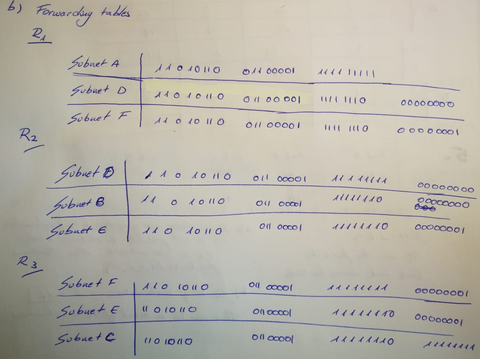 b) Forwarding tables
R1
Subnet A 11010110 01100001 11111111
Subnet D 11010110 01100001 11111110 00000000
Subnet F 11010110 01100001 11111110 00000001
R2
Subnet D 11010110 01100001 11111111 00000000
Subnet B 11010110 01100001 11111110 00000000
Subnet E 11010110 01100001 11111110 00000001
R3
Subnet F 11010110 01100001 11111111 00000001
Subnet E 11010110 01100001 11111110 00000001
Subnet C 11010110 01100001 11111110 11111111